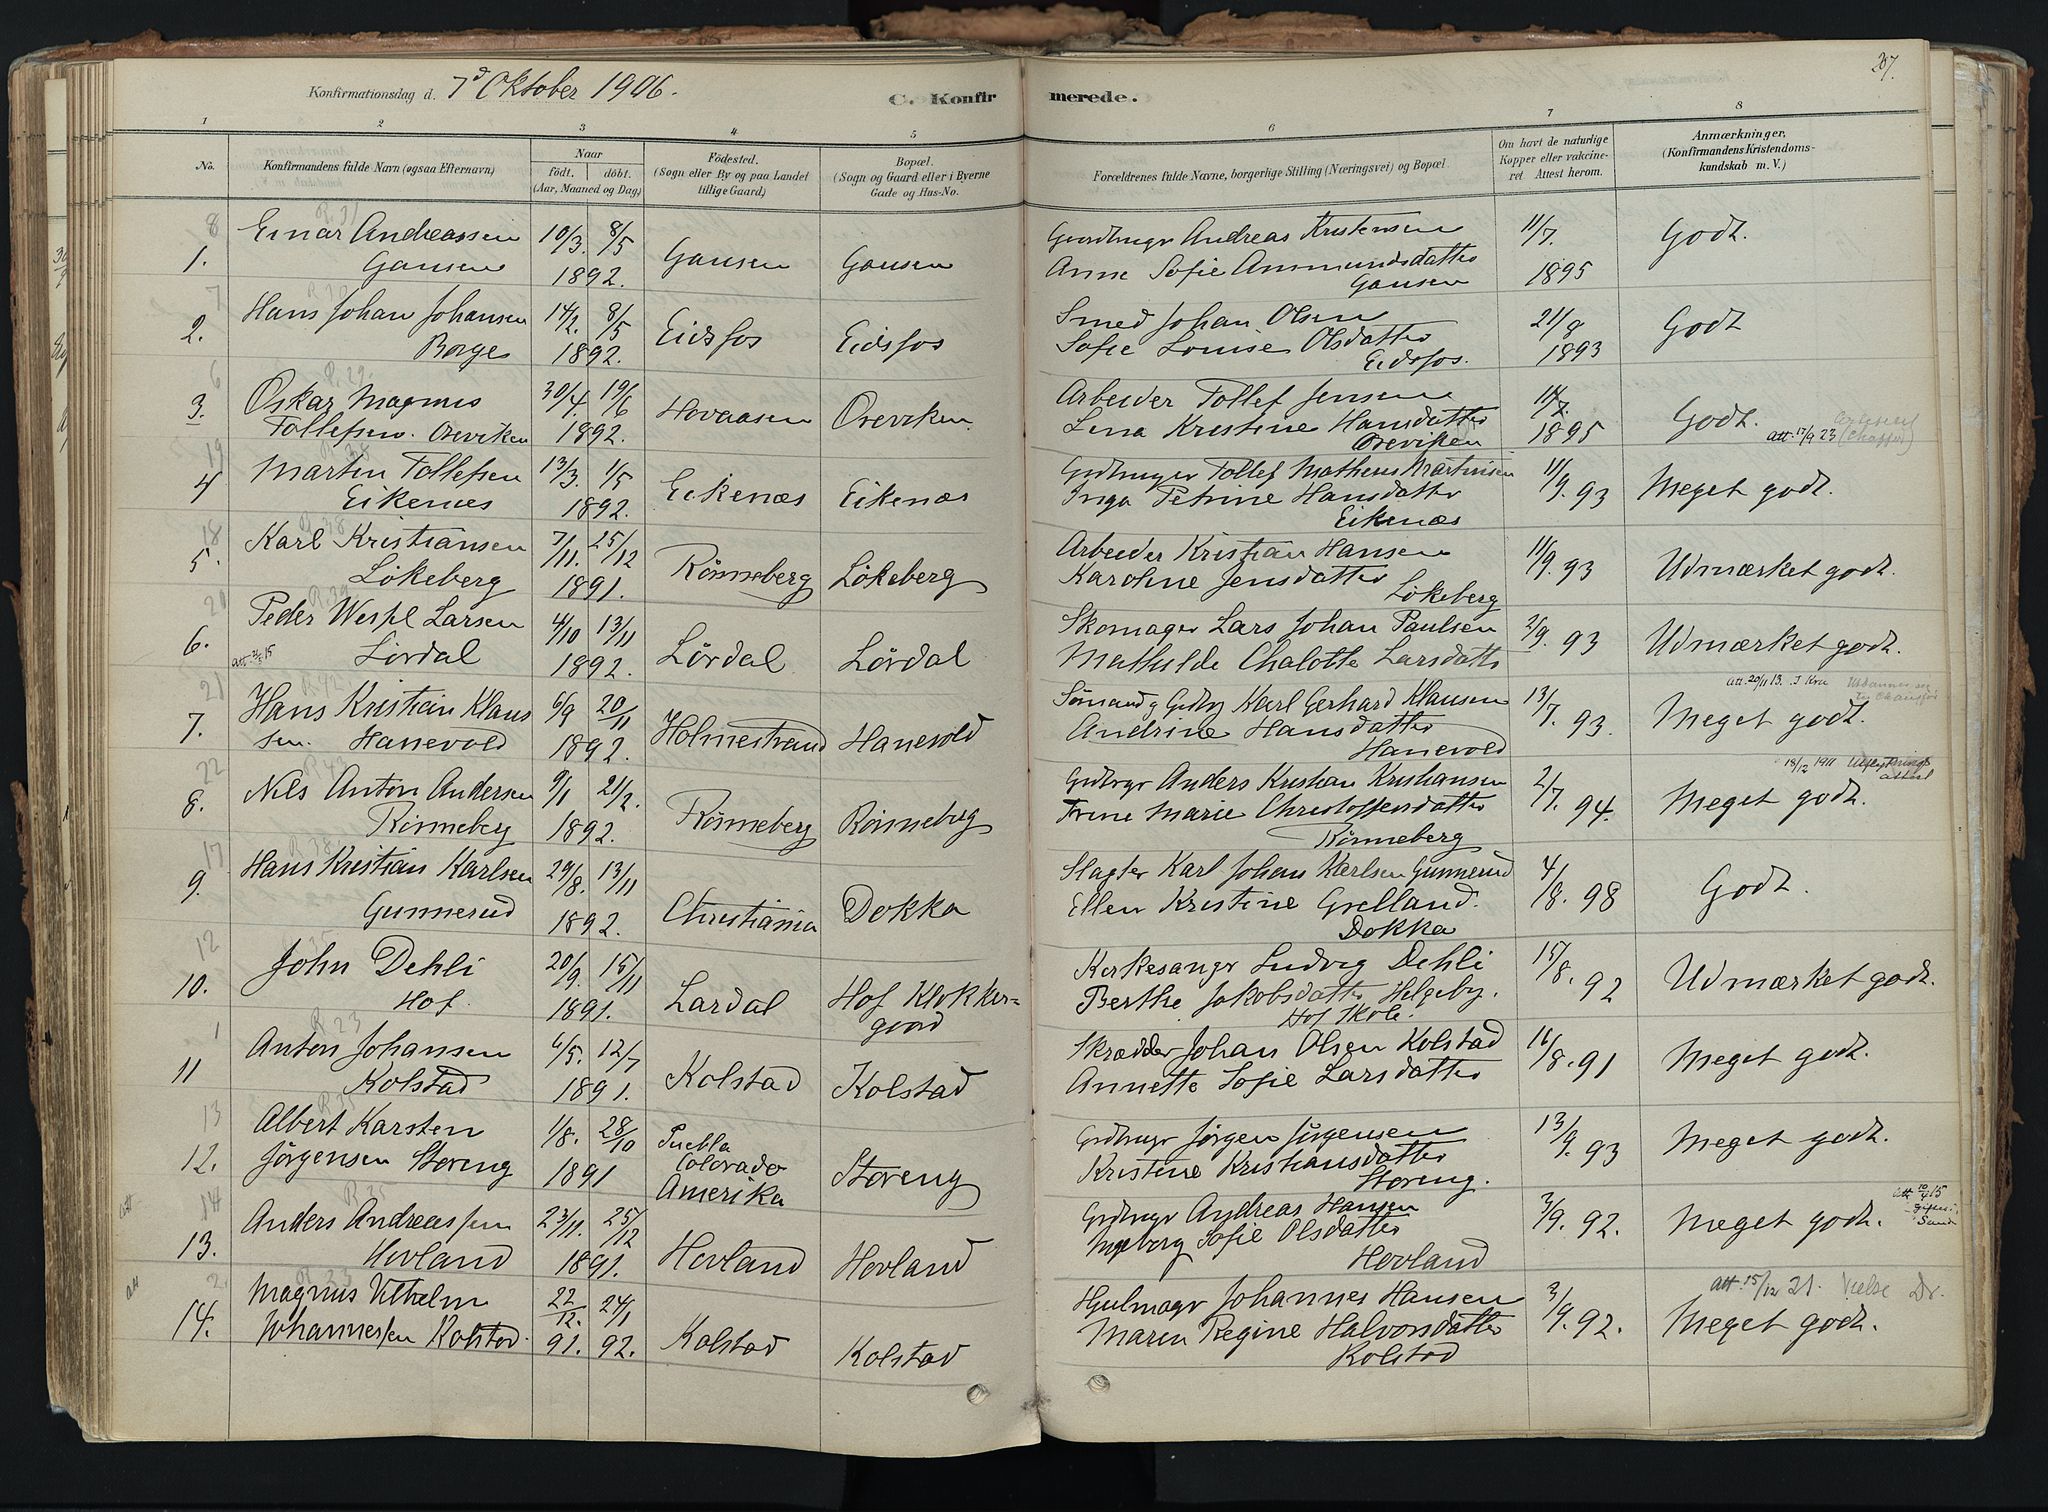 Konfirmationsdag d. 7d Oktober 1906.
C. Konfirmerede.
207.
1 2 3 4 5 6 7 8
No. Konfirmandens fulde Navn (ogsaa Efternavn)
Naar født. døbt. (Aar, Maaned og Dag)
Fødested. (Sogn eller By og paa Landet tillige Gaard)
Bopæl. (Sogn og Gaard eller i Byerne Gade og Hus-No.
Forældrenes fulde Navne, borgerlige Stilling (Næringsvei) og Bopæl.
Om havt de naturlige Kopper eller vakcineret Attest herom.
Anmærkninger, (Konfirmandens Kristendomskundskab m. V.)
8 R. 31
1. Einar Andreassen 10/3. 8/5 Gausen Gausen Gaardbrugr Andreas Kristensen 11/7. Godt.
Gausen 1892. Anne Sofie Ammundsdatter 1895
Gausen
7
2. Hans Johan Johansen 14/2. 8/5 Eidsfos Eidsfos Smed Johan Olsen 21/8 Godt
Borge 1892. Sofie Louise Olsdatter 1893
Eidsfos.
6 R. 29.
3. Oskar Magnus 30/4. 19/6 Hovaasen Oreviken Arbeider Tollef Jensen Godt.
Tollefsen. Oreviken 1892. Lina Kristine Hansdatter 1895 Att. 17/9 23 (Chaffør)
Oreviken
19
4 Martin Tollefsen 13/3. 1/5 Eikenæs Eikenæs Grdbruger Tollef Matheus Martinsen 11/9. 93 Meget godt.
Eikenæs 1892. Inga Petrine Hansdatter
Eikenæs
18 R. 38
5. Karl Kristiansen 7/11. 25/12 Rønneberg Løkeberg Arbeider Kristian Hansen 11/9. 93 Udmærket godt.
Løkeberg 1891. Karoline Jensdatter
Løkeberg
20 R. 39
6. Peder Wespl Larsen 4/10 13/11 Lørdal Lørdal Skomager Lars Johan Paulsen 2/9. 93 Udmærket godt.
Lørdal 1892. Mathilde Chalotte Larsdatter
21 R 42 Att. 20/11 13.
7. Hans Kristian Klaus 6/9 20/11 Holmestrand Hanevold Sømand g Grdbr Karl Gerhard Klausen 13/7. 93. Meget godt.
sen. Hanevold 1892. Andrine Hansdatter
Hanevold
22 R 43 18/12 1911
8. Nils Anton Andersen 9/1 21/2. Rønneberg Rønneberg Grdbrgr Anders Kristian Kristiansen 2/7. 94. Meget godt.
Rønneberg 1892. Trine Marie Christoffersdatter
Rønneberg
17 R 38
9. Hans Kristian Karlsen 29/8. 13/11 Christiania Dokka Slagter Karl Johan Karlsen Gunnerud 4/8. 98 Godt.
Gunnerud 1892. Ellen Kristine Grelland.
Dokka
12
10. John Dehli 20/9. 15/11 Lardal Hof Klokker= Kirkesangr Ludvig Dehli 15/8. 92 Udmærket godt.
Hof. 1891. gaard Berthe Jakobsdatter Helgeby.
Hof Skole.
1 R 23
11 Anton Johansen 6/5. 12/7 Kolstad Kolstad Skrædder Johan Olsen Kolstad 16/8. 91 Meget godt.
Kolstad 1891. Annette Sofie Larsdatter
13
12. Albert Karsten 1/8. 28/10 Puebla Storeng Grdbrugr Jørgen Jørgensen 13/9. 93 Meget godt.
Jørgensen Storeng 1891 Colorado Kristine Kristiansdatter
Amerika Storeng.
Att 14 R 35
13. Anders Andreassen 23/11. 25/12 Hovland Hovland Grdbrugr Andreas Hansen 3/9. 92. Meget godt. Att. 10/4 15
Hovland 1891. Ingeborg Sofie Olsdatter
Hovland
Att 2. R 23 Att 15/12 21. Vielse Dr.
14. Magnus Vilhelm 22/12. 24/1 Kolstad Kolstad Hjulmagr Johannes Hansen 3/9. 92. Meget godt.
Johannessen Kolstad. 91. 92. Maren Regine Halvorsdatter
Kolstad